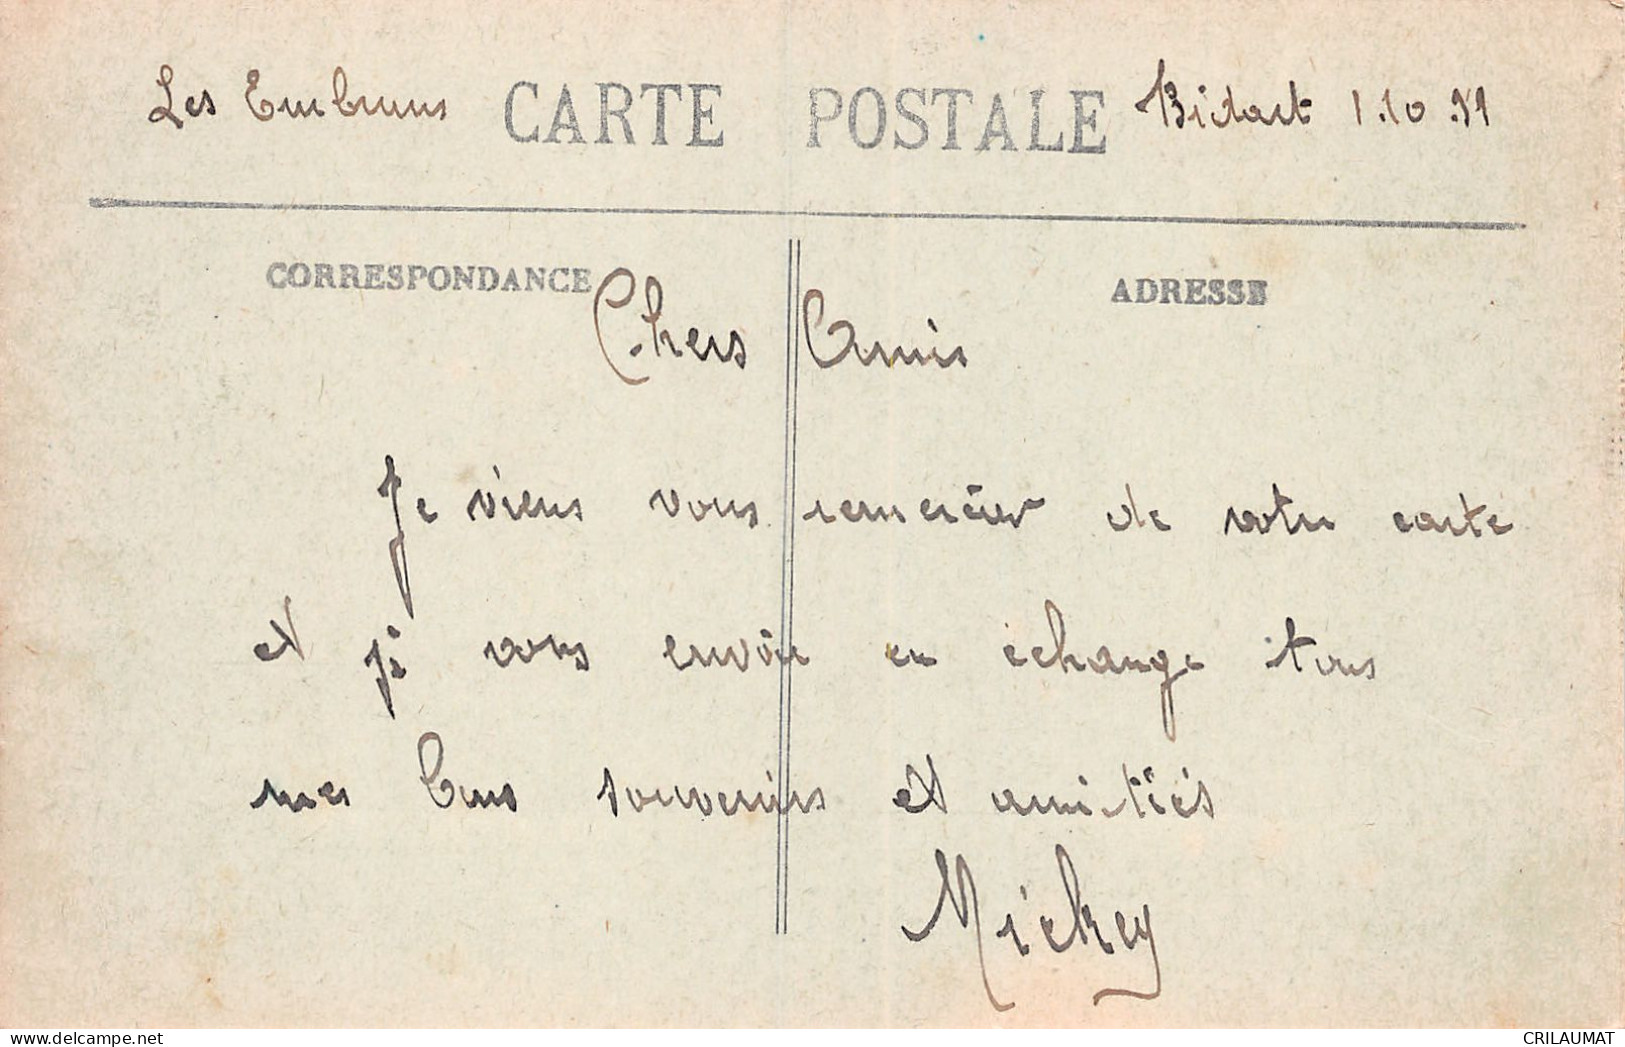 Les Embruns
CARTE POSTALE
Bidart 1.10.51
CORRESPONDANCE
ADRESSE
Chers Amis
Je viens vous remercier de votre carte
et je vous envoie en échange tous
mes bons souvenirs et amitiés
Mickey
CRILAUMAT
https://www.delcampe.net